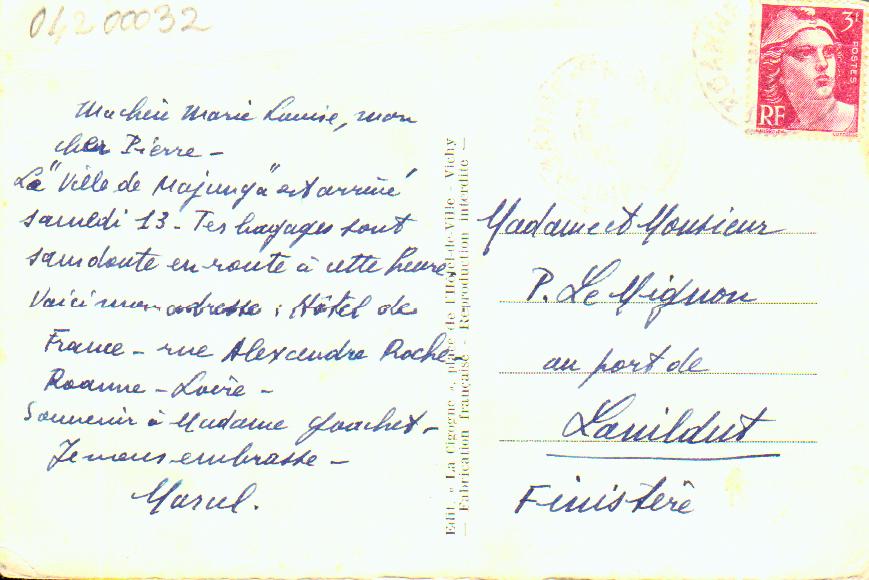 04200032
Ma chère Marie Louise, mon
cher Pierre -
Le "Ville de Majunga" est arrivé
samedi 13 - Tes bagages sont
sans doute en route à cette heure
Voici mon adresse : Hôtel de
France - rue Alexandre Roche -
Roanne - Loire -
Souvenir à Madame
Je vous embrasse -
Marcel.
Edit. « La Cigogne », place de l'Hôtel-de-Ville - Vichy
— Fabrication française - Reproduction interdite —
3F
POSTES
RF
Madame et Monsieur
P. Le Mignon
au port de
Lanildut
Finistère